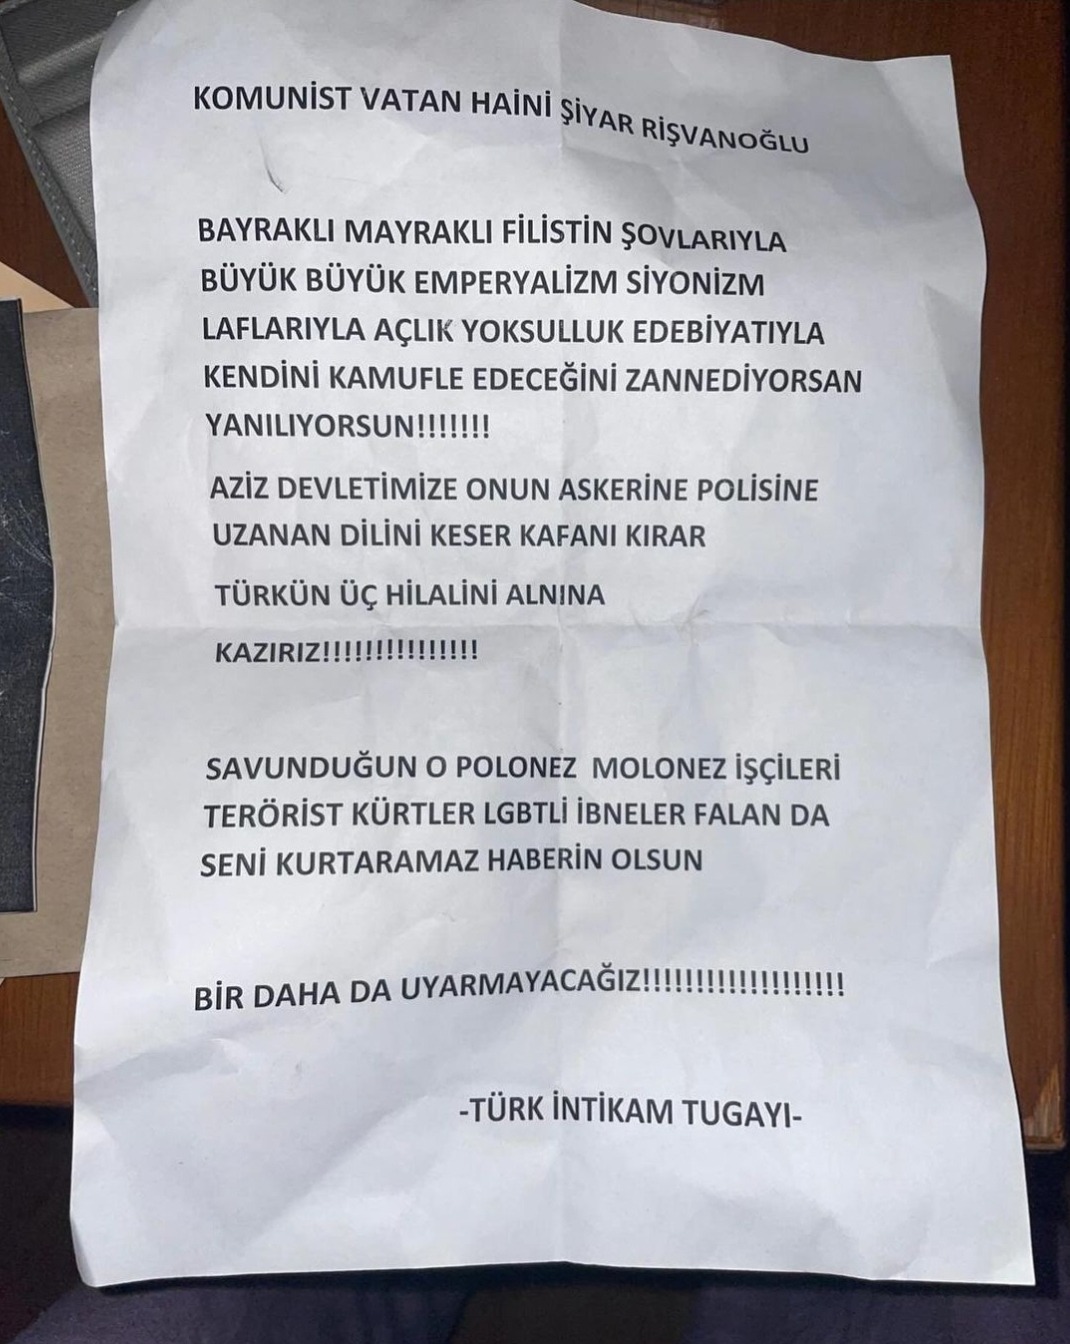 KOMUNİST VATAN HAİNİ ŞİYAR RİŞVANOĞLU
BAYRAKLI MAYRAKLI FİLİSTİN ŞOVLARIYLA
BÜYÜK BÜYÜK EMPERYALİZM SİYONİZM
LAFLARIYLA AÇLIK YOKSULLUK EDEBİYATIYLA
KENDİNİ KAMUFLE EDECEĞİNİ ZANNEDİYORSAN
YANILIYORSUN!!!!!!!
AZİZ DEVLETİMİZE ONUN ASKERİNE POLİSİNE
UZANAN DİLİNİ KESER KAFANI KIRAR
TÜRKÜN ÜÇ HİLALİNİ ALNINA
KAZIRIZ!!!!!!!!!!!!!!!
SAVUNDUĞUN O POLONEZ MOLONEZ İŞÇİLERİ
TERÖRİST KÜRTLER LGBTLİ İBNELER FALAN DA
SENİ KURTARAMAZ HABERİN OLSUN
BİR DAHA DA UYARMAYACAĞIZ!!!!!!!!!!!!!!!!!!!
-TÜRK İNTİKAM TUGAYI-